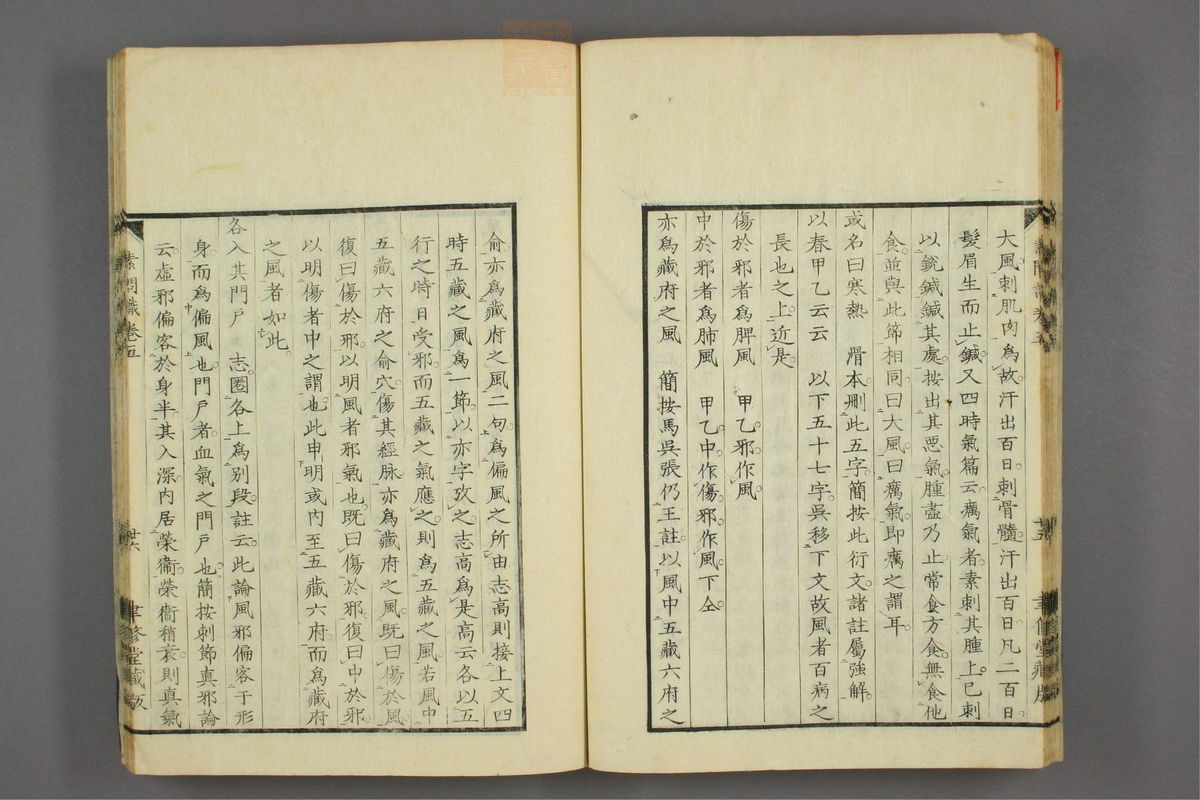 大風刺肌肉爲故汗出百日刺骨髓汗出百日凡二百日
髮眉生而止鍼又四時氣篇云癘氣者素刺其腫上已刺
以銳鍼鍼其處按出其惡氣腫盡乃止常食方食無食他
食並與此節相同曰大風曰癘氣卽癘之謂耳
或名曰寒熱 滑本刪此五字簡按此衍文諸註屬強解
以春甲乙云云 以下五十七字吳移下文故風者百病之
長也之上近是
傷於邪者爲脾風 甲乙邪作風
中於邪者爲肺風 甲乙中作傷邪作風下仝
亦爲藏府之風 簡按馬吳張仍王註以風中五藏六府之
俞亦爲藏府之風二句爲偏風之所由志高則接上文四
時五藏之風爲一節以亦字攷之志高爲是高云各以五
行之時日受邪而五藏之氣應之則爲五藏之風若風中
五藏六府之俞穴傷其經脉亦爲藏府之風旣曰傷於風
復曰傷於邪以明風者邪氣也旣曰傷於邪復曰中於邪
以明傷者中之謂也此申明或內至五藏六府而爲藏府
之風者如此
各入其門戶 志圈各上爲別段註云此論風邪偏客于形
身而爲偏風也門戶者血氣之門戶也簡按刺節真邪論
云虛邪偏客於身半其入深內居榮衞榮衞稍衰則真氣
素問識卷五
廿六
聿修堂藏版